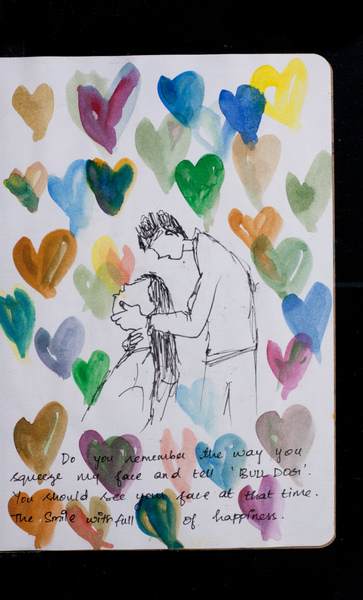 Do you remember the way you
squeeze my face and tell 'BULL DOG'.
You should see your face at that time.
The Smile with full of happiness.